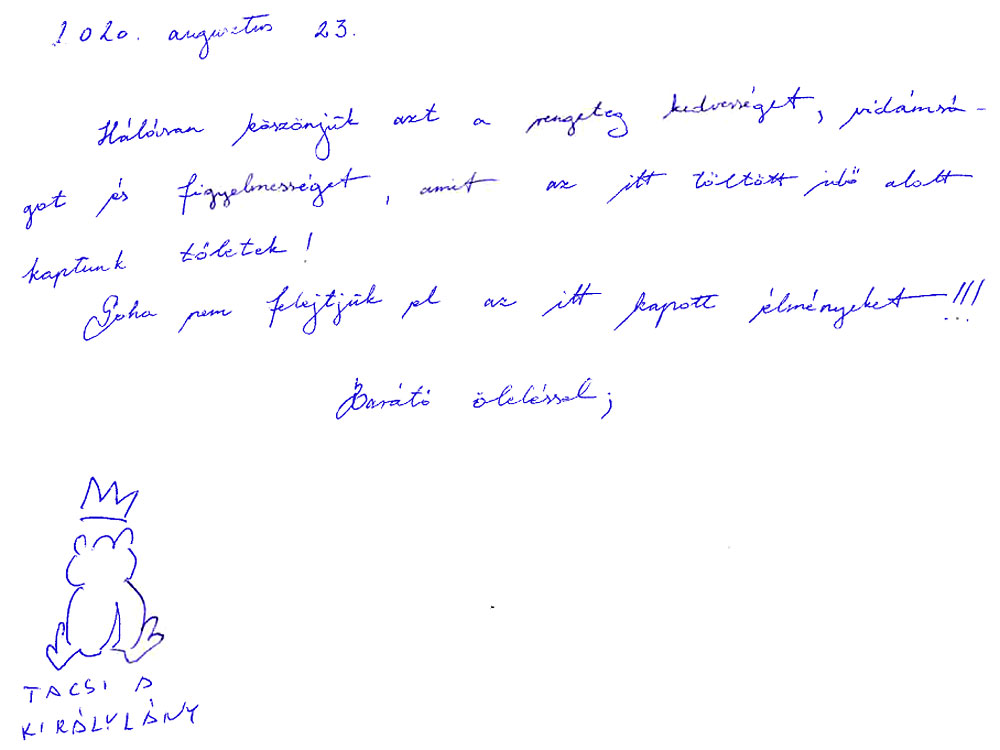 2020. augusztus 23.
Hálásan köszönjük azt a rengeteg kedvességet, vidámsá-
got és figyelmességet, amit az itt töltött idő alatt
kaptunk tőletek!
Soha nem felejtjük el az itt kapott élményeket!!!
Baráti öleléssel;
TACSI A
KIRÁLYLÁNY